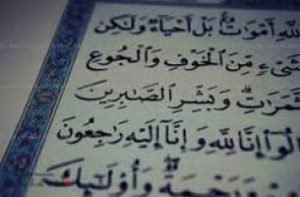 اللَّهِ أَمْوَاتٌ ۚ بَلْ أَحْيَاءٌ وَلَٰكِن
شَيْءٍ مِّنَ الْخَوْفِ وَالْجُوعِ
ثَّمَرَاتِ ۗ وَبَشِّرِ الصَّابِرِينَ
الُوا إِنَّا لِلَّهِ وَإِنَّا إِلَيْهِ رَاجِعُونَ
وَرَحْمَةٌ ۖ وَأُولَٰئِكَ